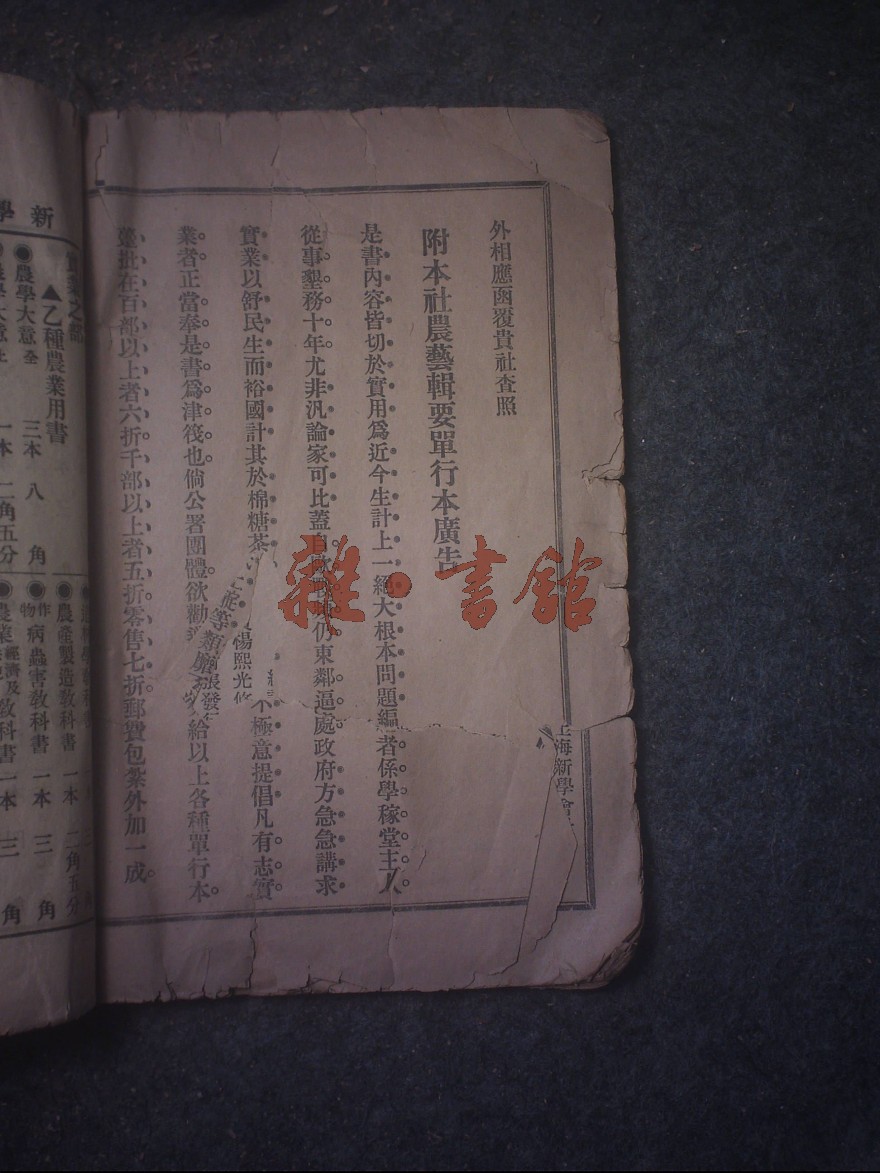 外相應函覆貴社查照
附本社農藝輯要單行本廣告
是書內容皆切於實用爲近今生計上一絕大根本問題編者係學稼堂主人
從事墾務十年尤非汎論家可比蓋自仍東鄰逼處政府方急急講求
實業以舒民生而裕國計其於棉糖茶不極意提倡凡有志實
業者正當奉是書爲津筏也倘公署團體欲勸給以上各種單行本
躉批在百部以上者六折千部以上者五折零售七折郵費包紮外加一成
等類
楊熙光
張發
上海新學會
雜·書館
新學
實業之部
▲乙種農業用書
●農學大意 全 三本 八角
●農學大意 一本 二角五分
農產製造教科書 一本 二角五分
●作物病蟲害教科書 一本 三角
農業經濟及教科書 一本 三角